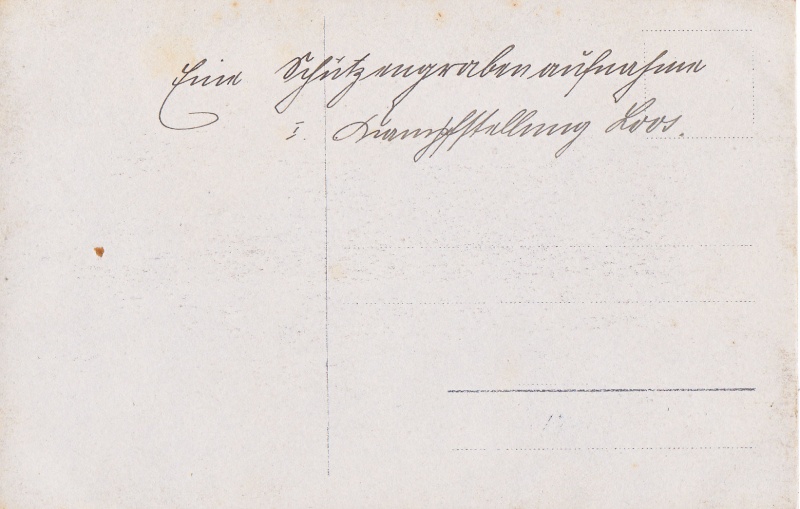 Eine Schützengrabenaufnahme
I. Kampfstellung Loos.